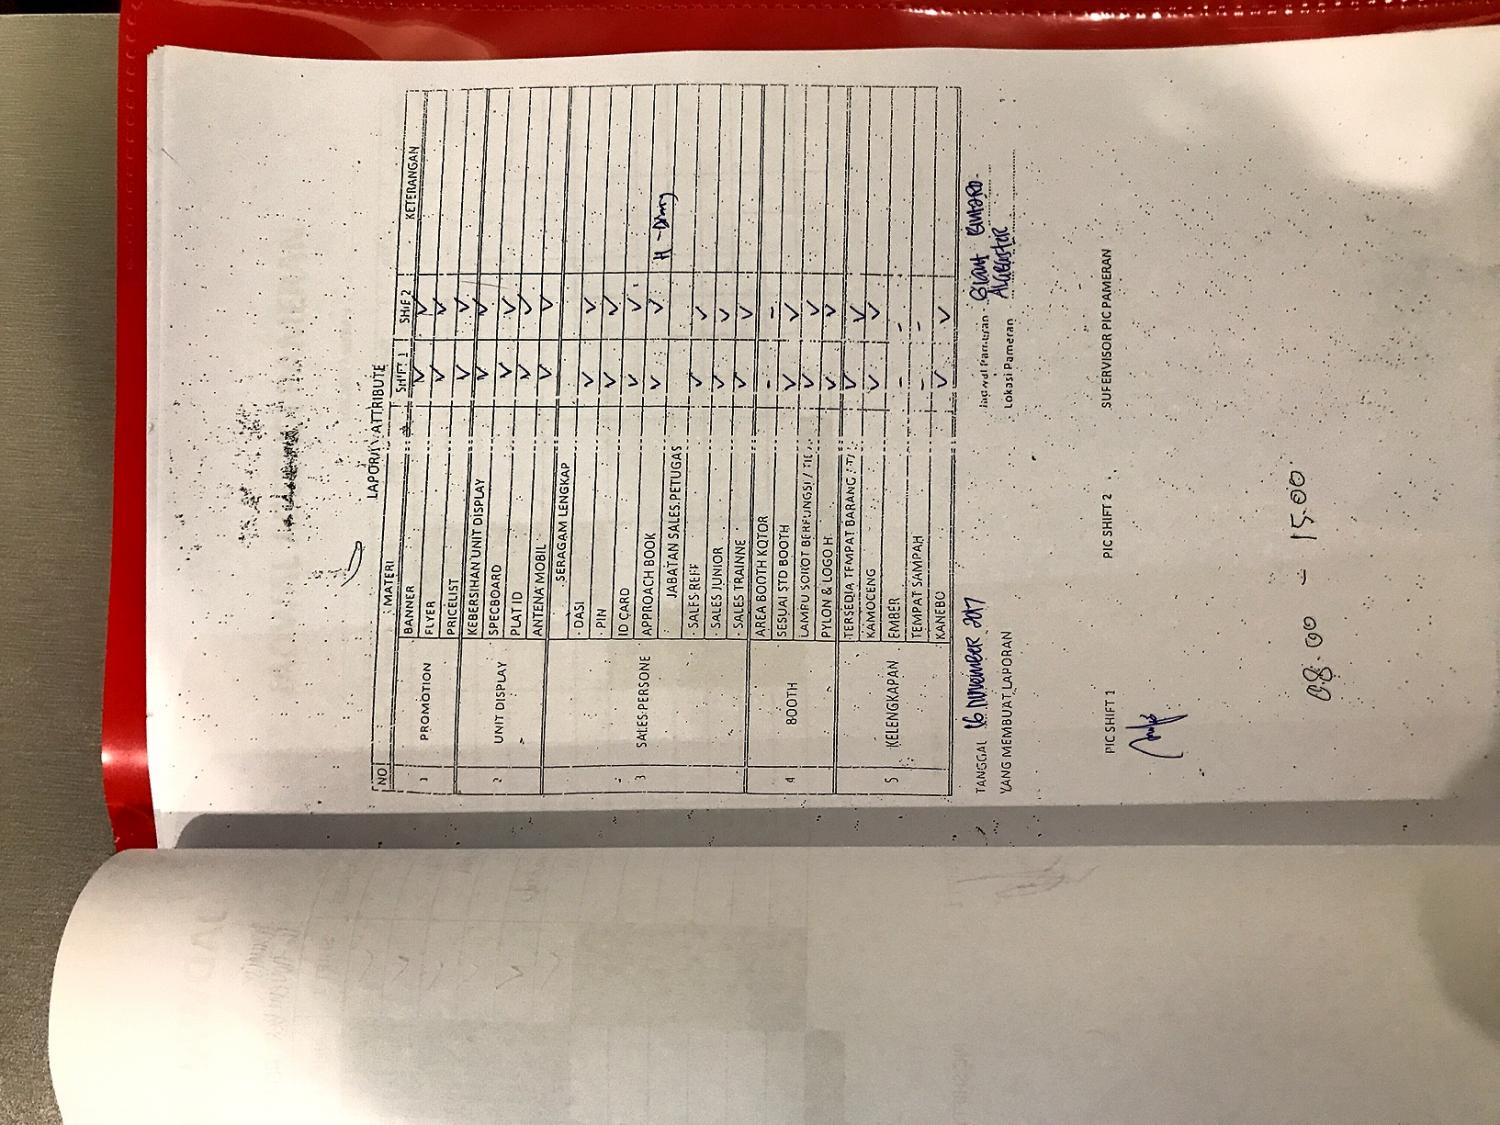 LAPORAN ATTRIBUTE
NO MATERI SHIFT 1 SHIF 2 KETERANGAN
1 PROMOTION BANNER ✓ ✓
FLYER ✓ ✓
PRICELIST ✓ ✓
2 UNIT DISPLAY KEBERSIHAN UNIT DISPLAY ✓ ✓
SPECBOARD ✓ ✓
PLAT ID ✓ ✓
ANTENA MOBIL ✓ ✓
3 SALES PERSONE SERAGAM LENGKAP
- DASI ✓ ✓
- PIN ✓ ✓
ID CARD ✓ ✓
APPROACH BOOK ✓ ✓
JABATAN SALES PETUGAS
- SALES REFF ✓ ✓
- SALES JUNIOR ✓ ✓
- SALES TRAINNE ✓ ✓
4 BOOTH AREA BOOTH KOTOR - -
SESUAI STD BOOTH ✓ ✓
LAMPU SOROT BERFUNGSI / ✓ ✓
PYLON & LOGO H ✓ ✓
5 KELENGKAPAN TERSEDIA TEMPAT BARANG ✓ ✓
KAMOCENG ✓ ✓
EMBER - -
TEMPAT SAMPAH - -
KANEBO ✓ ✓
TANGGAL 16 NOVEMBER 2017 Pameran Giant BINTARO
YANG MEMBUAT LAPORAN Lokasi Pameran
PIC SHIFT 1 PIC SHIFT 2 SUPERVISOR PIC PAMERAN
08.00 - 15.00